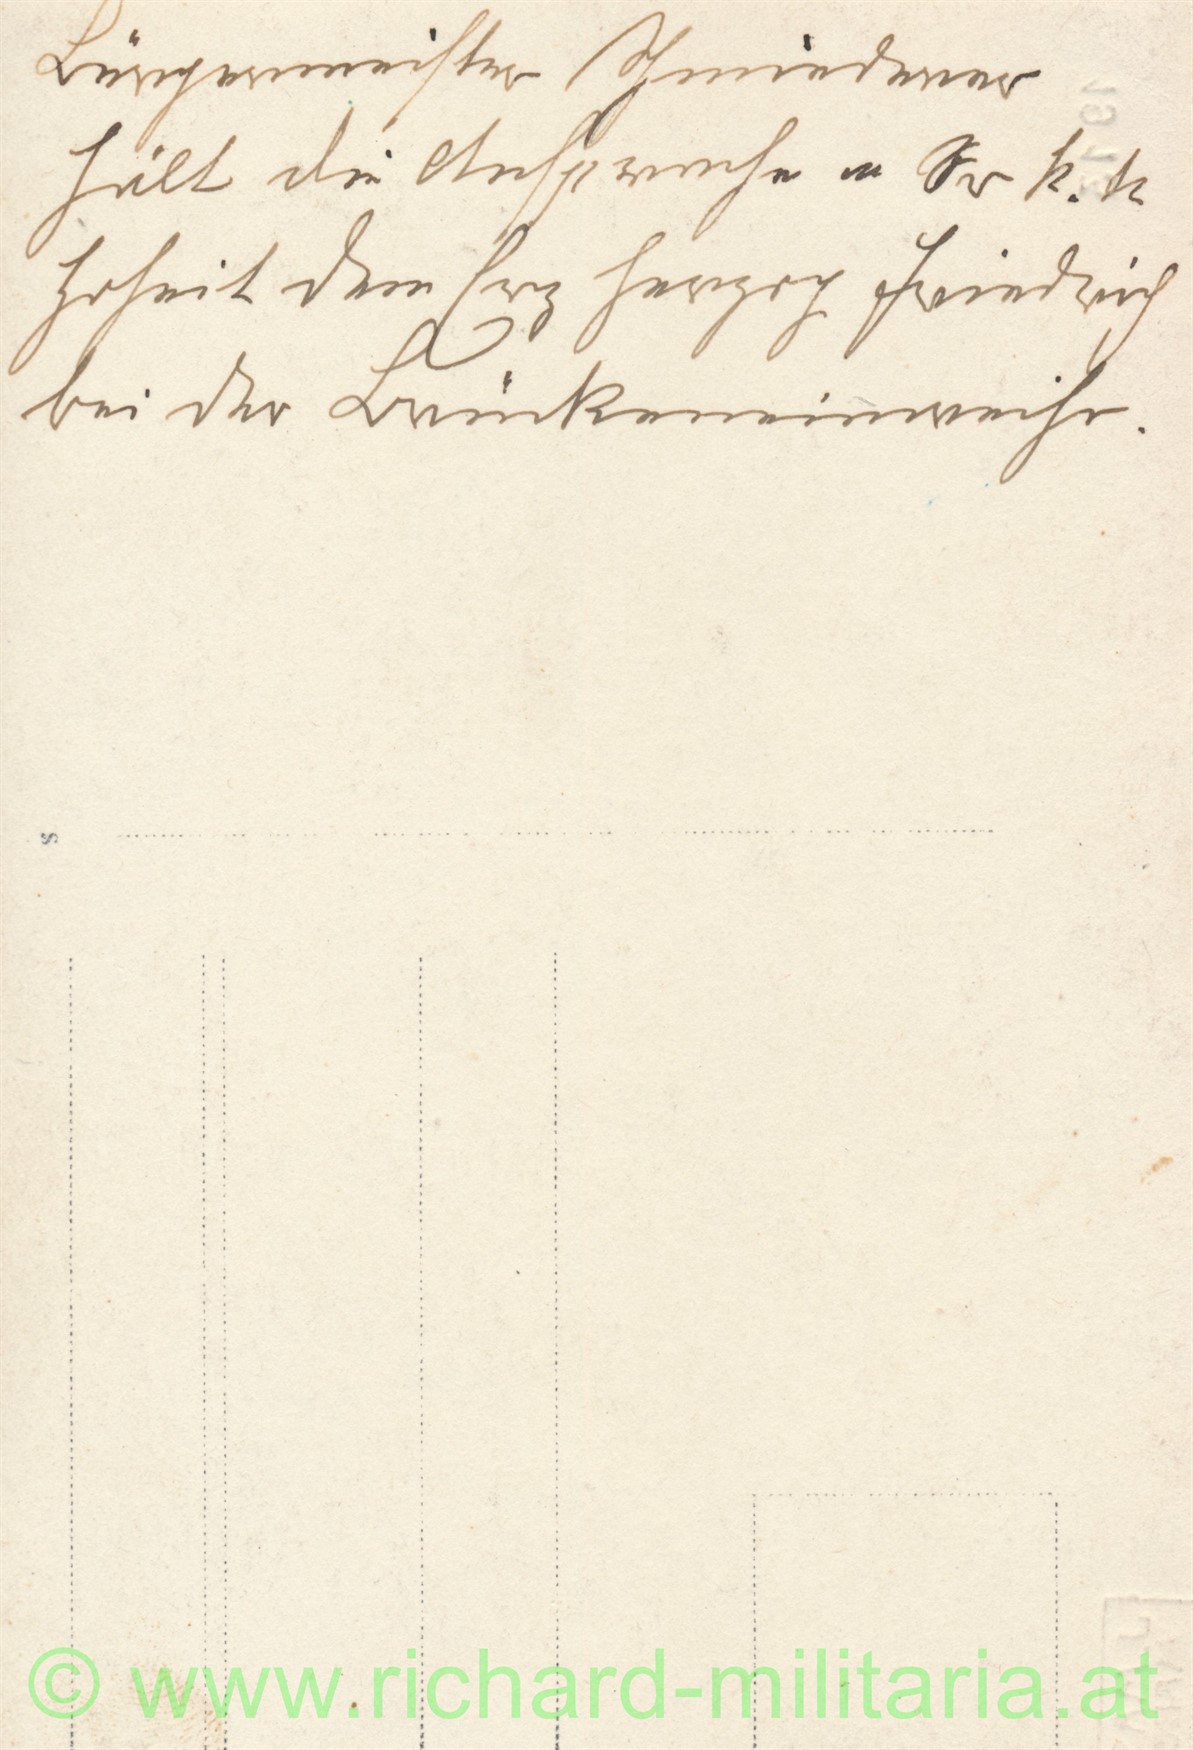 Bürgermeister Schmiederer
hält die Ansprache an Sr k. k
Hoheit dem Erz herzog Friedrich
bei der Brückeneinweihe.
s
© www.richard-militaria.at